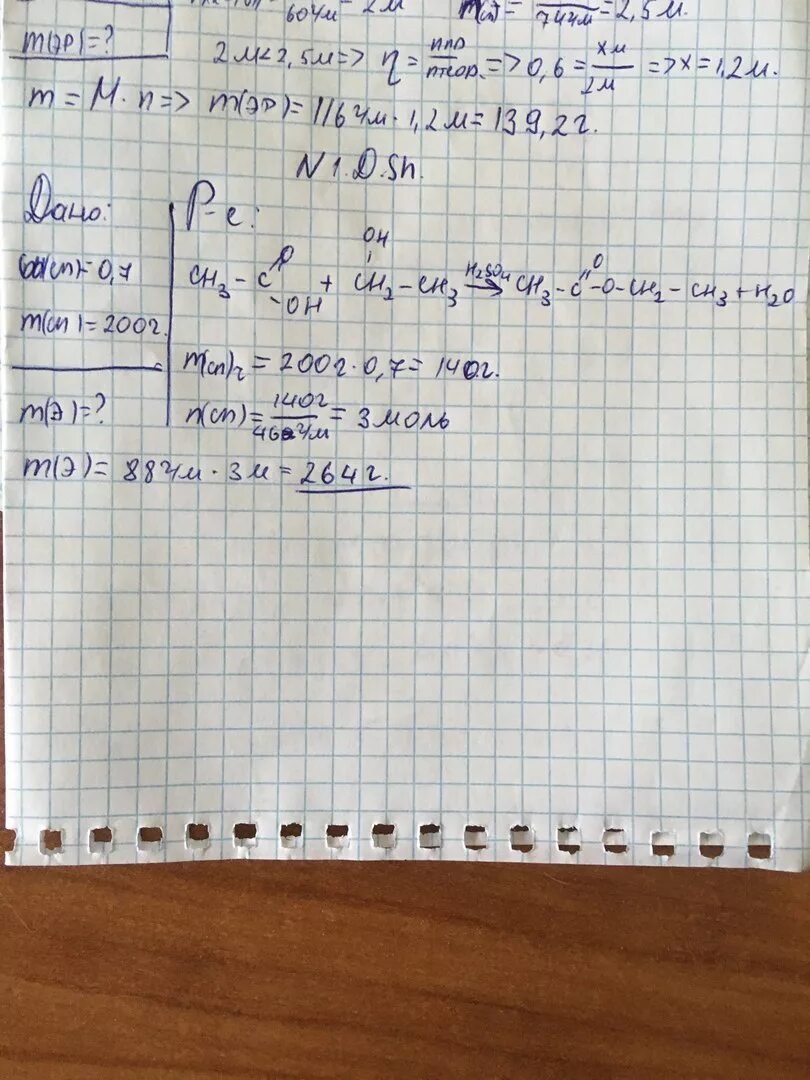 604м = 2м
m(сп) = 744м = 2,5м.
m(ЭР) = ?
2м < 2,5м => η = nпр / nтеор. => 0,6 = xм / 2м => x = 1,2м.
m = M · n => m(ЭР) = 116ч м · 1,2м = 139,2г.
N 1. D.Sh.
Дано:
Р-е:
OH
(сп) = 0,7
CH3 – C =O –OH + CH2 – CH3 H2SO4 → CH3 – C =O – O – CH2 – CH3 + H2O
m(сп) = 200г.
m(сп)г = 200г · 0,7 = 140г.
m(Э) = ?
n(сп) = 140г / 46 г/м = 3 моль
m(Э) = 88 г/м · 3м = 264г.